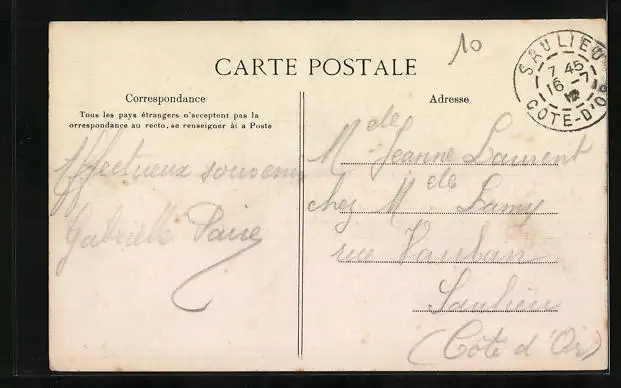 10
CARTE POSTALE
SAULIEU
7 45
16 -7
CÔTE-D'OR
Correspondance
Adresse
Tous les pays étrangers n'acceptent pas la
orrespondance au recto, se renseigner ài a Poste
Affectueux souvenir
Gabrielle
Mde Jeanne Laurent
chez Mde Lamy
rue Vauban
Saulieu
(Côte d'Or)